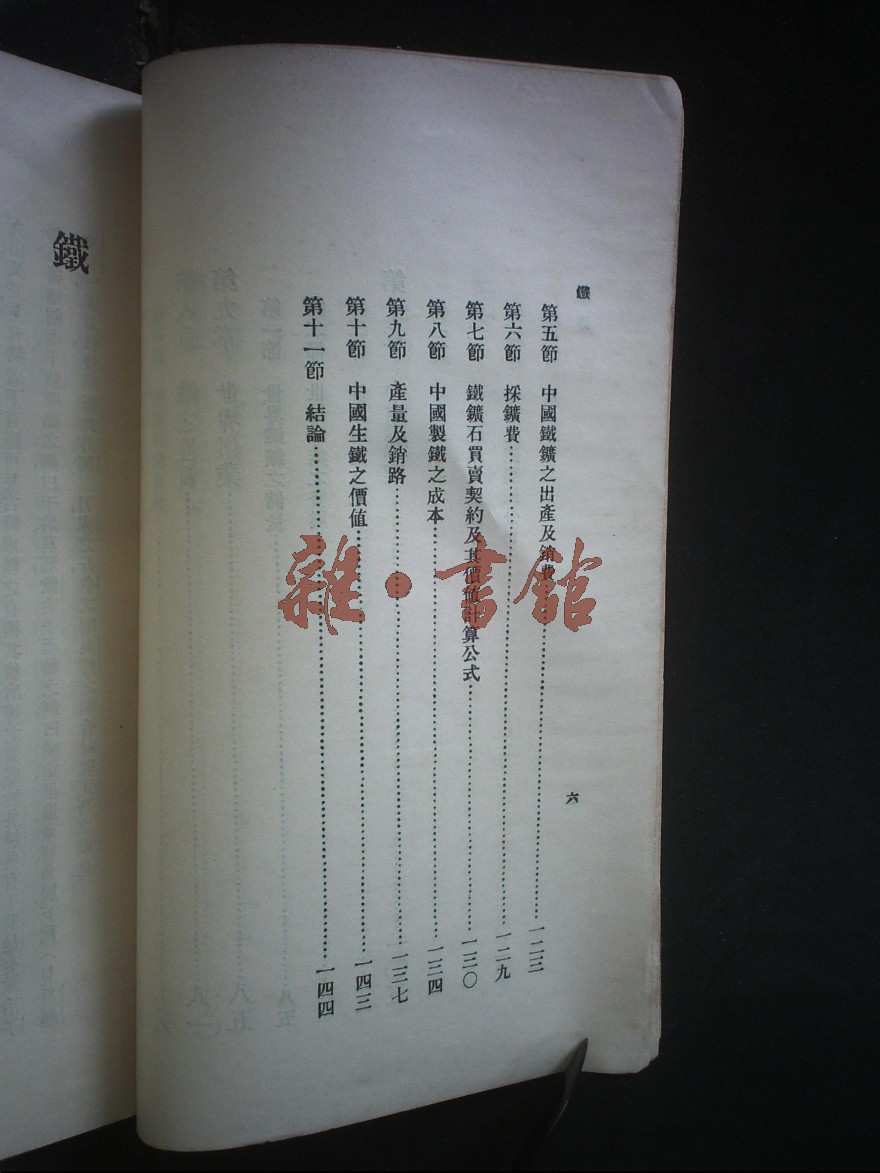 鐵
第五節　中國鐵鑛之出產及銷費……一二三
第六節　採鑛費……一二九
第七節　鐵鑛石買賣契約及其價值計算公式……一三〇
第八節　中國製鐵之成本……一三四
第九節　產量及銷路……一三七
第十節　中國生鐵之價值……一四三
第十一節　結論……一四四
六
鐵
雜·書館